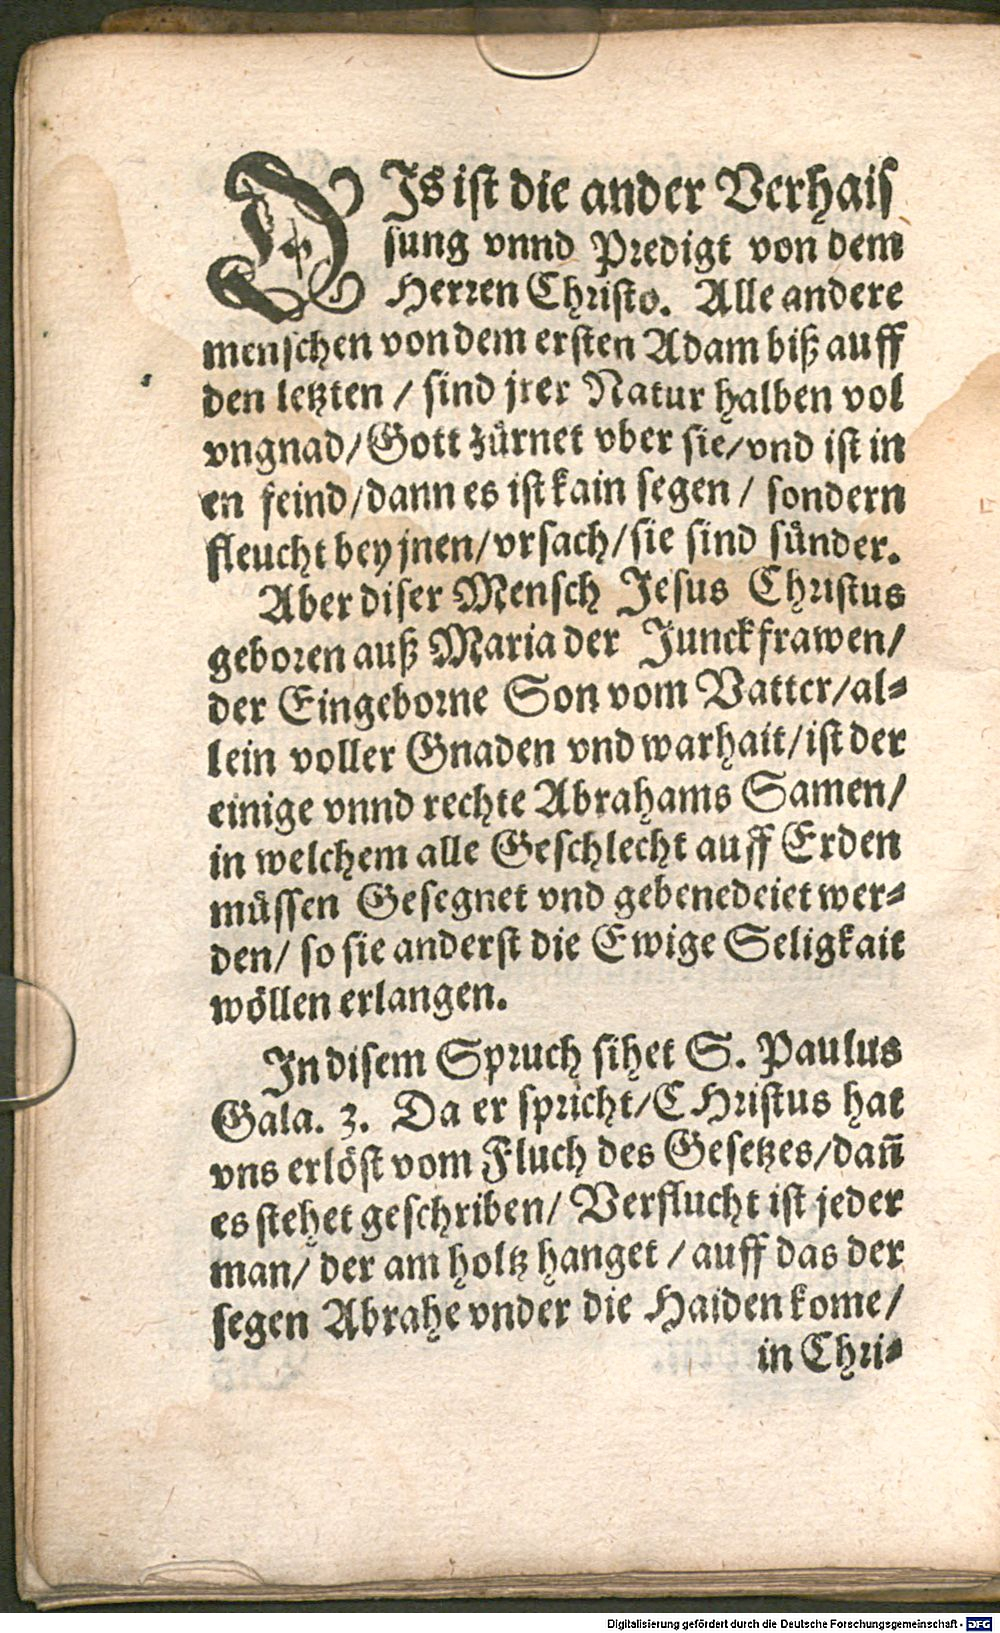 DIs ist die ander Verhais
sung vnnd Predigt von dem
Herren Christo. Alle andere
menschen von dem ersten Adam biß auff
den letzten / sind jrer Natur halben vol
vngnad/Gott zürnet vber sie/vnd ist in
en feind/dann es ist kain segen / sondern
fleucht bey jnen/vrsach/sie sind sünder.
Aber diser Mensch Jesus Christus
geboren auß Maria der Junckfrawen/
der Eingeborne Son vom Vatter/al-
lein voller Gnaden vnd warhait/ist der
einige vnnd rechte Abrahams Samen/
in welchem alle Geschlecht auff Erden
müssen Gesegnet vnd gebenedeiet wer-
den/ so sie anderst die Ewige Seligkait
wöllen erlangen.
In disem Spruch sihet S. Paulus
Gala. 3. Da er spricht/CHristus hat
vns erlöst vom Fluch des Gesetzes/dan̄
es stehet geschriben/ Verflucht ist jeder
man/ der am holtz hanget / auff das der
segen Abrahe vnder die Haiden kome/
in Chri-
Digitalisierung gefördert durch die Deutsche Forschungsgemeinschaft - DFG